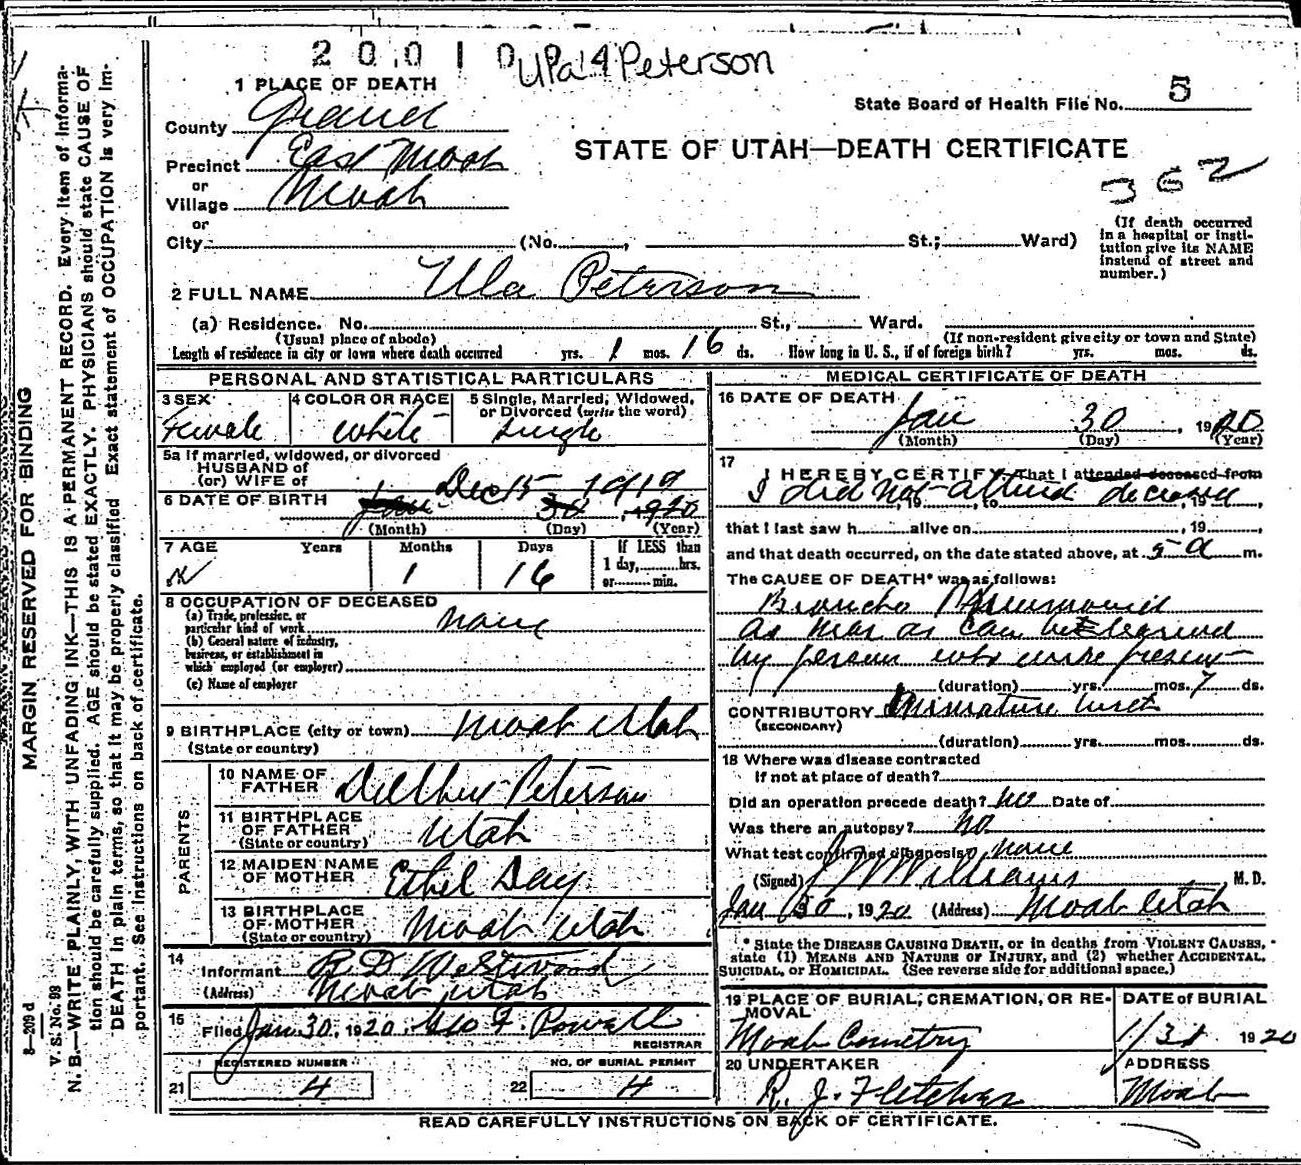 2 0 0 1 0 UPa 4 Peterson
1 PLACE OF DEATH
State Board of Health File No. 5
County Grand
STATE OF UTAH—DEATH CERTIFICATE
Precinct East Moab
362
or
Village Moab
or
City (No. , St.; Ward)
(If death occurred
in a hospital or insti-
tution give its NAME
instead of street and
number.)
2 FULL NAME Ula Peterson
(a) Residence. No. St., Ward.
(Usual place of abode) (If non-resident give city or town and State)
Length of residence in city or town where death occurred yrs. 1 mos. 16 ds. How long in U. S., if of foreign birth? yrs. mos. ds.
PERSONAL AND STATISTICAL PARTICULARS
3 SEX 4 COLOR OR RACE 5 Single, Married, Widowed,
or Divorced (write the word)
Female white Single
5a If married, widowed, or divorced
HUSBAND of
(or) WIFE of
Dec 15 1919
6 DATE OF BIRTH Jan 30, 1920
(Month) (Day) (Year)
7 AGE Years Months Days If LESS than
1 day, hrs.
or min.
1 16
8 OCCUPATION OF DECEASED
(a) Trade, profession, or
particular kind of work none
(b) General nature of industry,
business, or establishment in
which employed (or employer)
(c) Name of employer
9 BIRTHPLACE (city or town) Moab Utah
(State or country)
PARENTS
10 NAME OF
FATHER Peterson
11 BIRTHPLACE
OF FATHER Utah
(State or country)
12 MAIDEN NAME
OF MOTHER Ethel Day
13 BIRTHPLACE
OF MOTHER Moab Utah
(State or country)
14
Informant R D Westwood
(Address) Moab, Utah
15
Filed Jan 30, 1920 Geo F. Powell
REGISTRAR
REGISTERED NUMBER NO. OF BURIAL PERMIT
21 4 22 4
MEDICAL CERTIFICATE OF DEATH
16 DATE OF DEATH
Jan 30, 1920
(Month) (Day) (Year)
17
I HEREBY CERTIFY, That I attended deceased from
I did not attend deceased
, 19 , to , 19 ,
that I last saw h alive on , 19
and that death occurred, on the date stated above, at 5 a m.
The CAUSE OF DEATH* was as follows:
Broncho Pneumonia
as near as can be learned
by person who were present
(duration) yrs. mos. 7 ds.
CONTRIBUTORY Premature birth
(SECONDARY)
(duration) yrs. mos. ds.
18 Where was disease contracted
if not at place of death?
Did an operation precede death? no Date of
Was there an autopsy? no
What test confirmed diagnosis? none
(Signed) J W Williams M. D.
Jan 30, 1920 (Address) Moab Utah
* State the DISEASE CAUSING DEATH, or in deaths from VIOLENT CAUSES,
state (1) MEANS AND NATURE OF INJURY, and (2) whether ACCIDENTAL,
SUICIDAL, or HOMICIDAL. (See reverse side for additional space.)
19 PLACE OF BURIAL, CREMATION, OR RE-
MOVAL DATE of BURIAL
Moab Cemetry 1/31 1920
20 UNDERTAKER ADDRESS
R. J. Fletcher Moab
READ CAREFULLY INSTRUCTIONS ON BACK OF CERTIFICATE.
MARGIN RESERVED FOR BINDING
8—209 d
V. S. No. 98
N. B.—WRITE PLAINLY, WITH UNFADING INK—THIS IS A PERMANENT RECORD. Every item of informa-
tion should be carefully supplied. AGE should be stated EXACTLY. PHYSICIANS should state CAUSE OF
DEATH in plain terms, so that it may be properly classified. Exact statement of OCCUPATION is very im-
portant. See instructions on back of certificate.